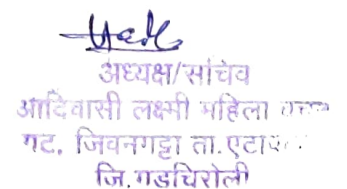 अध्यक्ष/सचिव
आदिवासी लक्ष्मी महिला
गट, जिवनगट्टा ता.
जि.गडचिरोली